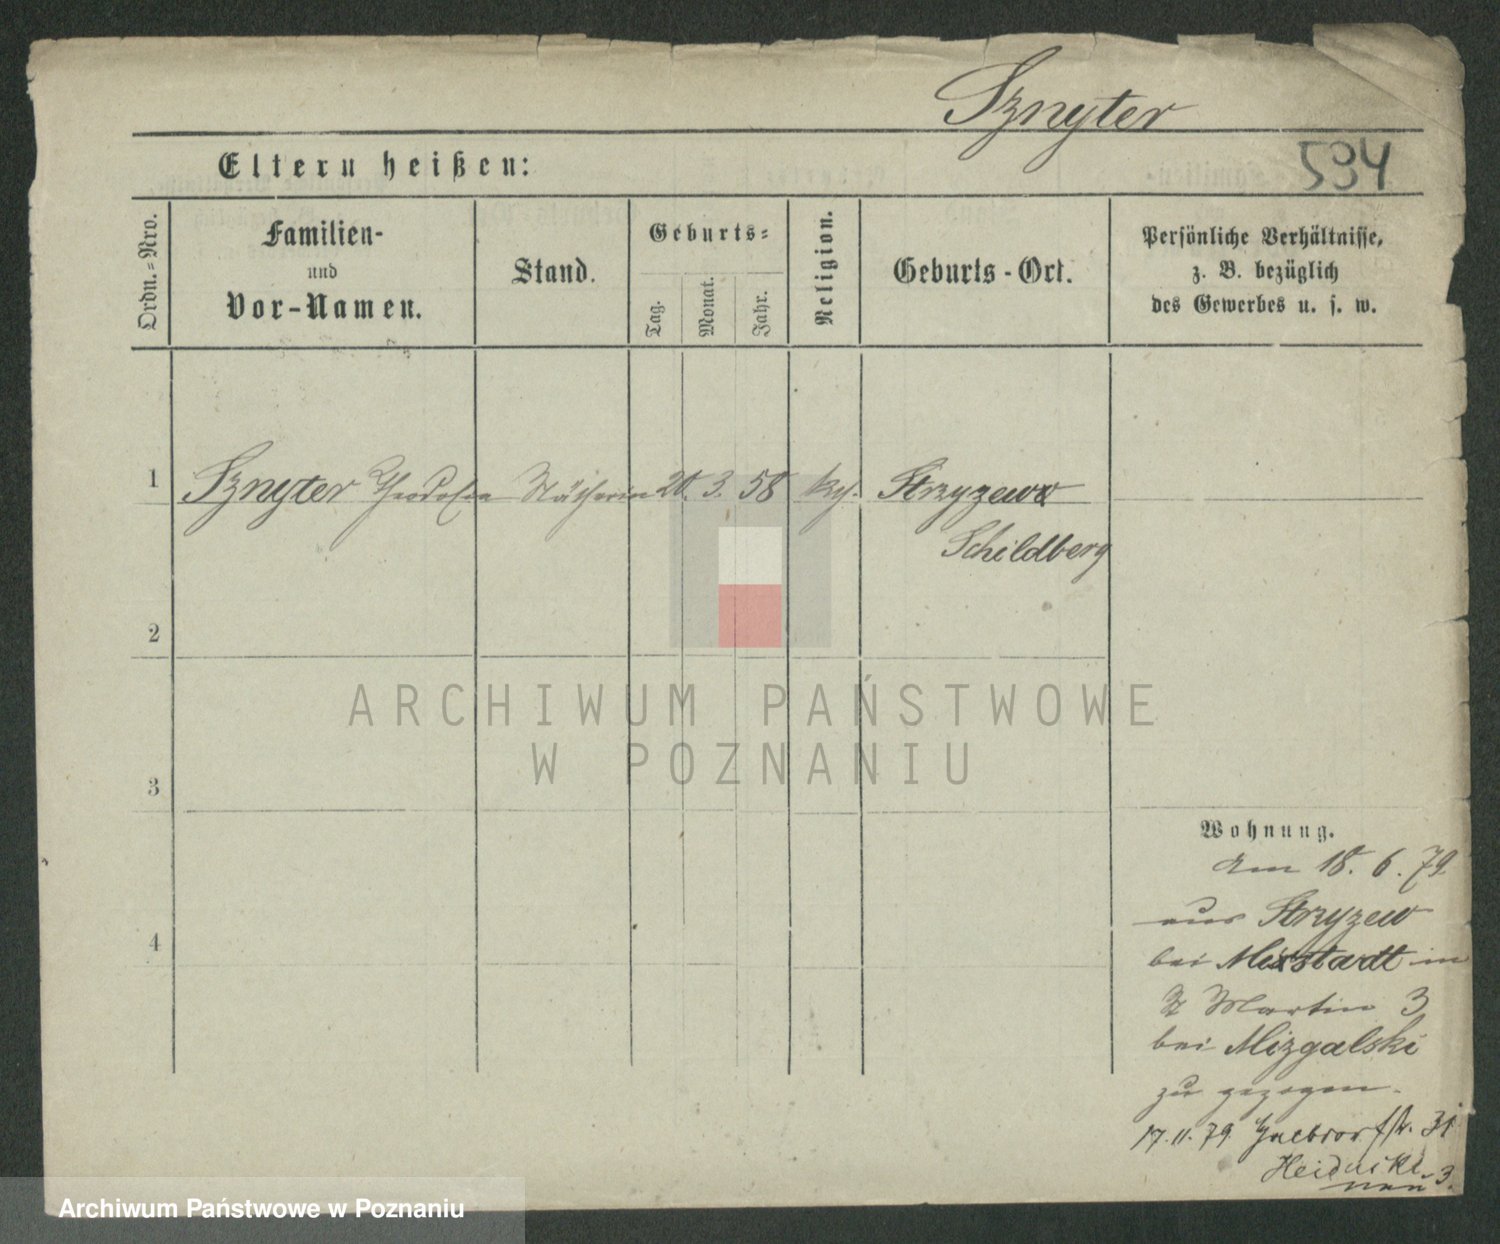 Sznyter
594
Eltern heißen:
Ordn.=Nro.
Familien-
und
Vor-Namen.
Stand.
Geburts=
Tag.
Monat.
Jahr.
Religion.
Geburts-Ort.
Persönliche Verhältnisse,
z. B. bezüglich
des Gewerbes u. s. w.
1 Sznyter Theodosia Nätherin 20. 3. 58 Strzyzewo
Schildberg
2
3
4
Wohnung.
am 18. 6. 79
aus Strzyzew
bei Mixstadt in
St Martin 3
bei Mizgalski
zu gezogen.
17. 11. 79 31
3.
ARCHIWUM PAŃSTWOWE
W POZNANIU
Archiwum Państwowe w Poznaniu